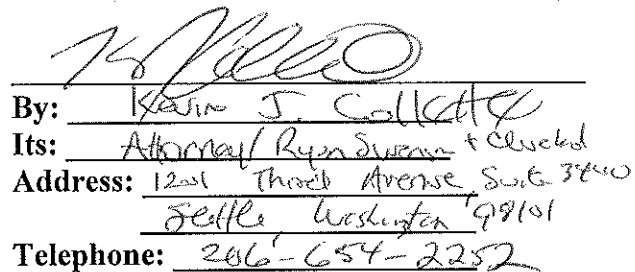 By: Kevin J. Collette
Its: Attorney/ Ryan Swanson + Cleveland
Address: 1201 Third Avenue, Suite 3400
Seattle Washington 98101
Telephone: 206-654-2252